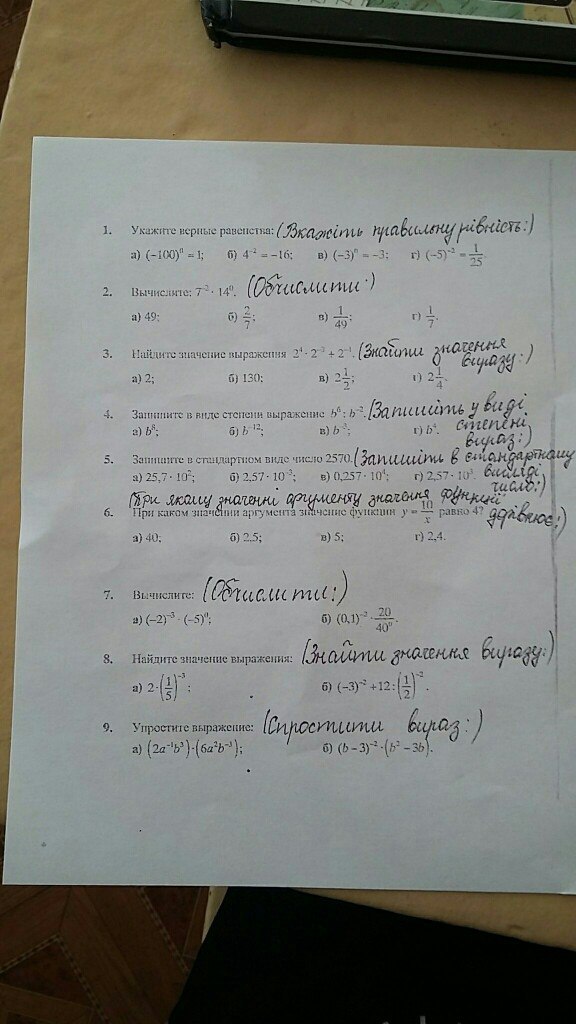 1. Укажите верные равенства: (Вкажіть правильну рівність:)
а) (−100)⁰ = 1; б) 4⁻² = −16; в) (−3)⁰ = −3; г) (−5)⁻² = 1/25.
2. Вычислите: 7⁻² · 14⁰. (Обчислити:)
а) 49; б) 2/7; в) 1/49; г) 1/7.
3. Найдите значение выражения 2⁴ · 2⁻³ + 2⁻¹. (Знайти значення
виразу:)
а) 2; б) 130; в) 2 1/2; г) 2 1/4.
4. Запишите в виде степени выражение b⁶ : b⁻². (Запишіть у виді
степені
вираз:)
а) b⁸; б) b⁻¹²; в) b⁻³; г) b⁴.
5. Запишите в стандартном виде число 2570. (Запишіть в стандартному
вигляді
число:)
а) 25,7 · 10²; б) 2,57 · 10⁻³; в) 0,257 · 10⁴; г) 2,57 · 10³.
(При якому значенні аргументу значення функції
6. При каком значении аргумента значение функции y = 10/x равно 4? дорівнює:)
а) 40; б) 2,5; в) 5; г) 2,4.
7. Вычислите: (Обчислити:)
а) (−2)⁻³ · (−5)⁰; б) (0,1)⁻² · 20/40⁰.
8. Найдите значение выражения: (Знайти значення виразу:)
а) 2 · (1/5)⁻³; б) (−3)⁻² + 12 : (1/2)⁻².
9. Упростите выражение: (Спростити вираз:)
а) (2a⁻¹b³) · (6a²b⁻³); б) (b − 3)⁻² · (b² − 3b).